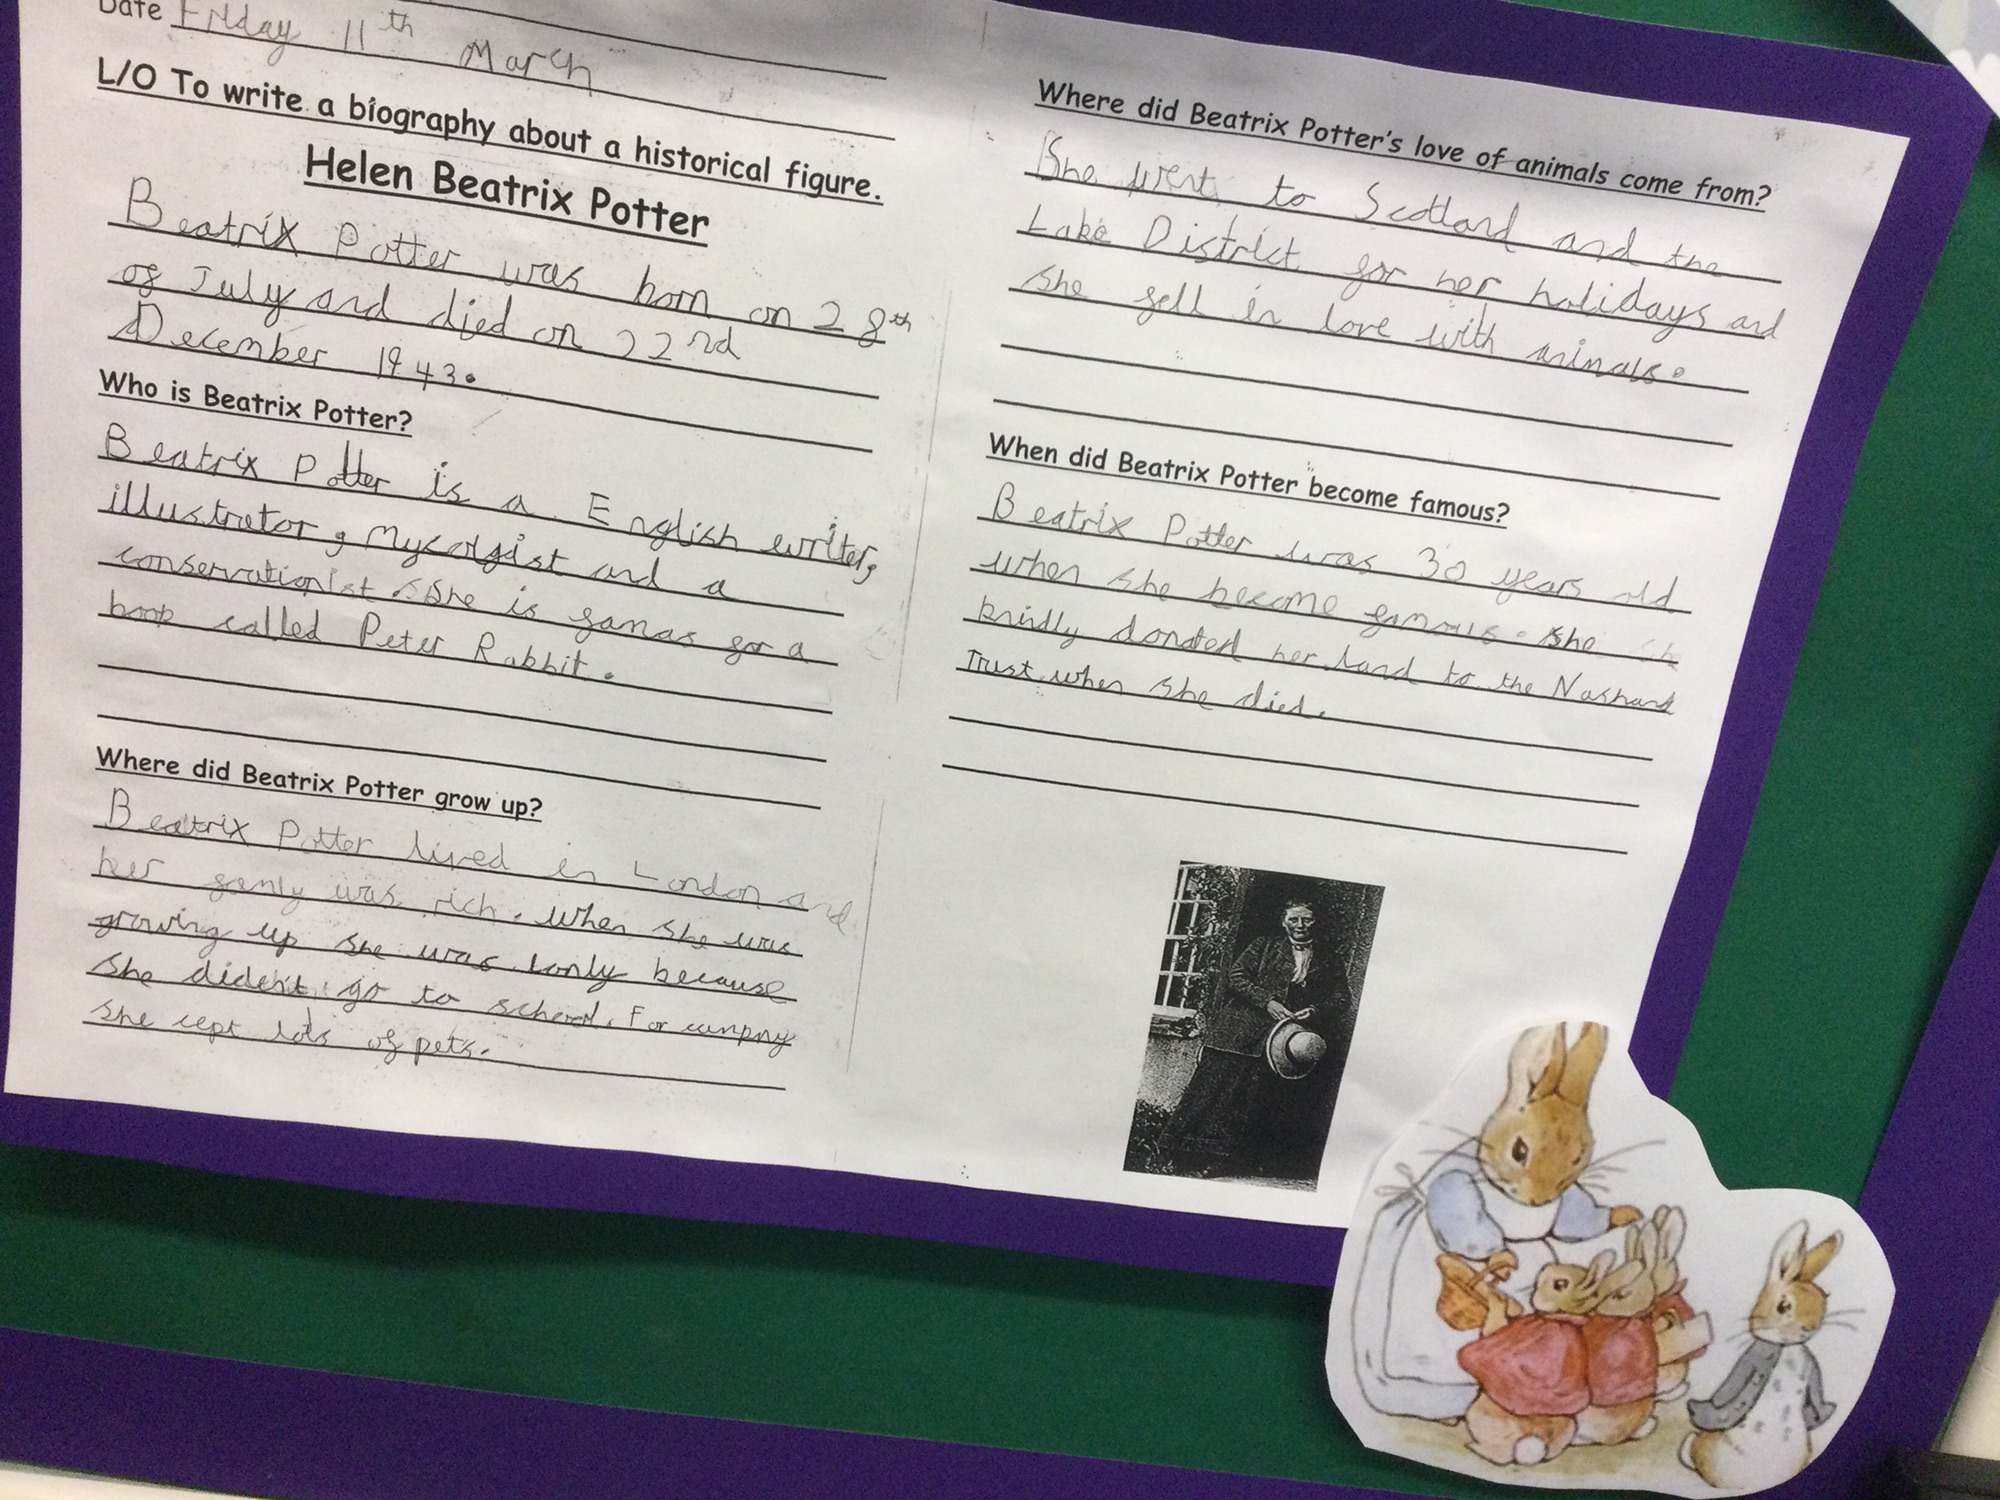 Date Friday 11th March
L/O To write a biography about a historical figure.
Helen Beatrix Potter
Beatrix Potter was born on 28th
of July and died on 22nd
December 1943.
Who is Beatrix Potter?
Beatrix Potter is a English writer,
illustrator, Mycolgist and a
conservationist. She is famas for a
book called Peter Rabbit.
Where did Beatrix Potter grow up?
Beatrix Potter lived in London and
her famly was rich. when she was
growing up she was lonly because
she dident go to school. For cumpny
she cept lots of pets.
Where did Beatrix Potter's love of animals come from?
She went to Scotland and the
Lake District for her holidays and
she fell in love with animals.
When did Beatrix Potter become famous?
Beatrix Potter was 30 years old
when she become famous. she
kindly donated her land to the Nashanal
Trust when she died.